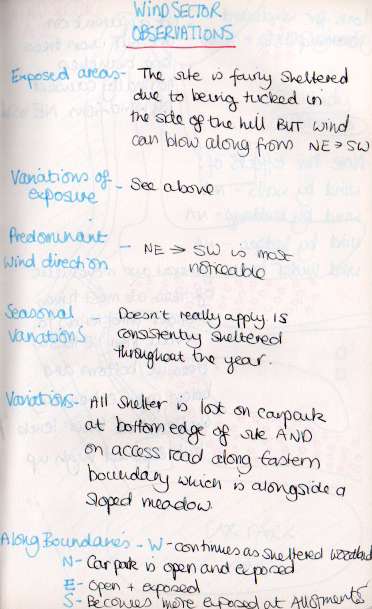 WIND SECTOR
OBSERVATIONS
Exposed areas - The site is fairly sheltered
due to being tucked in
the side of the hill BUT wind
can blow along from NE → SW
Variations of
exposure - See above
Predominant
wind direction - NE → SW is most
noticeable
Seasonal
variations - Doesn't really apply IS
consistently sheltered
throughout the year.
Variations - All shelter is lost on carpark
at bottom edge of site AND
on access road along Eastern
boundary which is alongside a
sloped meadow.
Along Boundaries - W - continues as sheltered woodland
N - Car park is open and exposed
E - open + exposed
S - Becomes more exposed at Allotments